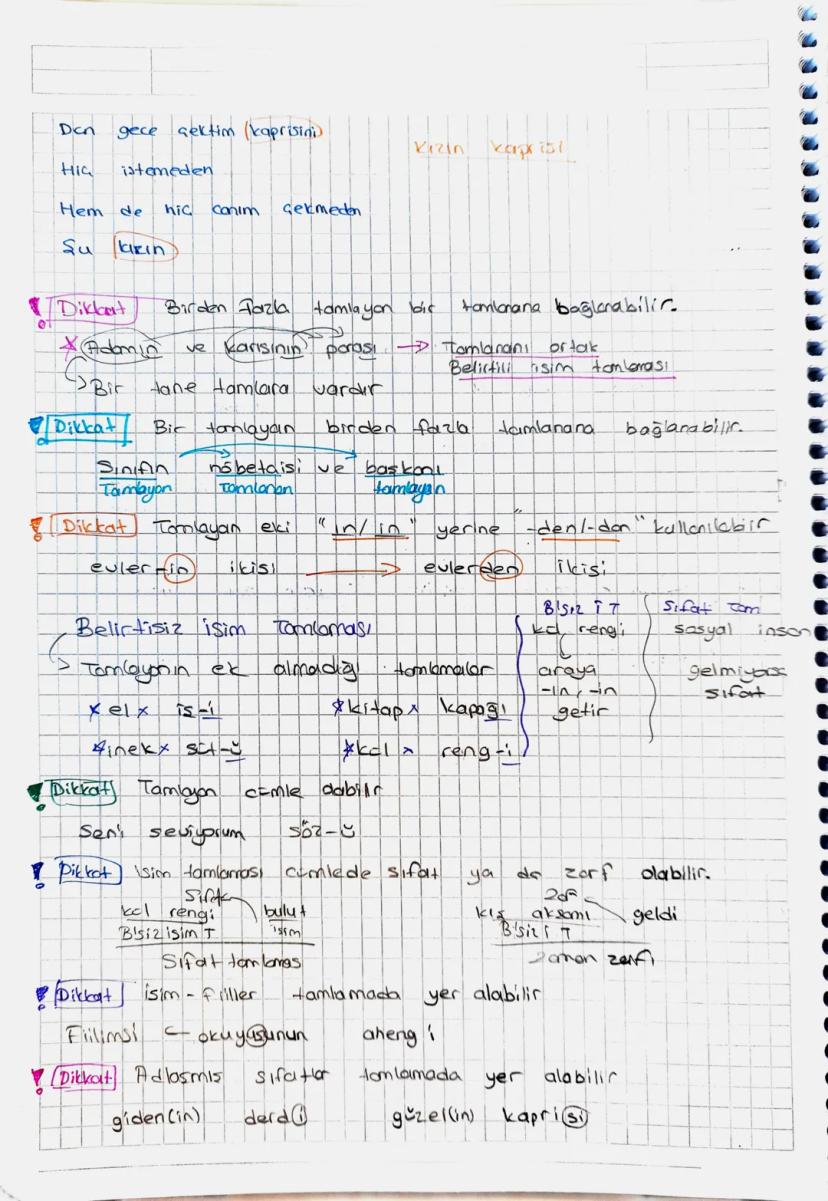 Dün gece çektim (kaprisini)
kızın kaprisi
Hiç istemeden
Hem de hiç canım çekmeden
Şu kızın
! Dikkat Birden fazla tamlayan bir tamlanana bağlanabilir.
* Adamın ve karısının parası → Tamlananı ortak
Belirtili isim tamlaması
Bir tane tamlama vardır
! Dikkat Bir tamlayan birden fazla tamlanana bağlanabilir.
Sınıfın nöbetçisi ve başkanı
Tamlayan Tamlanan tamlayan
! Dikkat Tamlayan eki "ın/in" yerine "-den/-dan" kullanılabilir
evler-in ikisi → evlerden ikisi
Belirtisiz isim Tamlaması
→ Tamlayanın ek almadığı tamlamalar
* el x iş-i * kitap x kapağı
* inek x süt-ü * kül x reng-i
B'siz İ T
kül rengi
araya
-ın, -in
getir
Sıfat Tam
sosyal insan
gelmiyorsa
sıfat
! Dikkat Tamlayan cümle olabilir
Seni seviyorum söz-ü
! Dikkat İsim tamlaması cümlede sıfat ya da zarf olabilir.
Sıfat
kül rengi bulut
B'siz isim T isim
Sıfat tamlaması
Zarf
kış akşamı geldi
B'siz İ T
Zaman zarfı
! Dikkat isim-fiiller tamlamada yer alabilir
Fiilimsi ← okuyuşunun ahengi
! Dikkat Adlaşmış sıfatlar tamlamada yer alabilir
giden(in) derd(i) güzel(in) kapri(si)